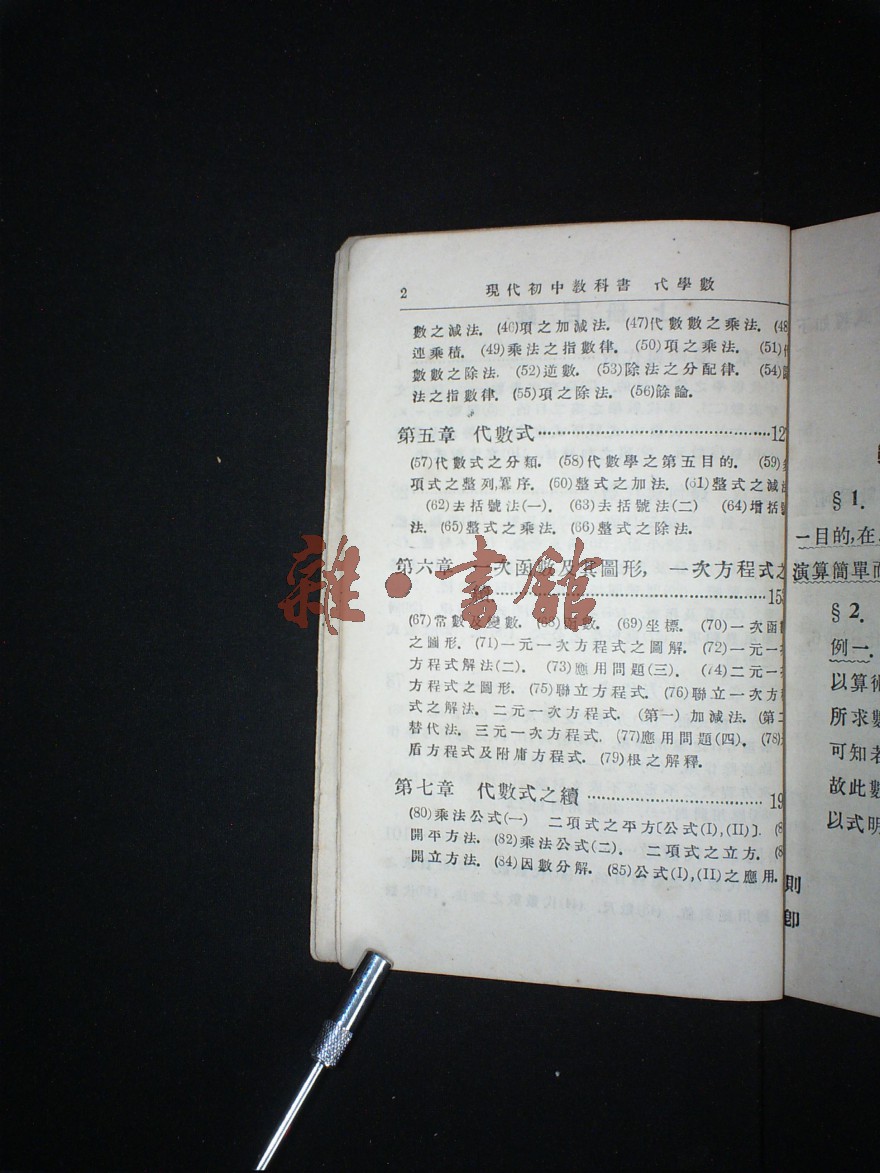 2 現代初中教科書 代學數
數之減法. (46)項之加減法. (47)代數數之乘法. (48
連乘積. (49)乘法之指數律. (50)項之乘法. (51)
數數之除法. (52)逆數. (53)除法之分配律. (54)
法之指數律. (55)項之除法. (56)餘論.
第五章 代數式……12
(57)代數式之分類. (58)代數學之第五目的. (59)
項式之整列,冪序. (60)整式之加法. (61)整式之減
(62)去括號法(一). (63)去括號法(二) (64)增括
法. (65)整式之乘法. (66)整式之除法.
第六章 一次函數及其圖形, 一次方程式之
……15
(67)常數及變數. (68)函數. (69)坐標. (70)一次函
之圖形. (71)一元一次方程式之圖解. (72)一元一
方程式解法(二). (73)應用問題(三). (74)二元一
方程式之圖形. (75)聯立方程式. (76)聯立一次方
式之解法. 二元一次方程式. (第一)加減法. (第二
替代法. 三元一次方程式. (77)應用問題(四). (78)
盾方程式及附庸方程式. (79)根之解釋.
第七章 代數式之續……19
(80)乘法公式(一) 二項式之平方〔公式(I),(II)〕.
開平方法. (82)乘法公式(二). 二項式之立方.
開立方法. (84)因數分解. (85)公式(I),(II)之應用.
§ 1.
一目的,在
演算簡單而
§ 2.
例一.
以算術
所求數
可知若
故此數
以式明
則
卽
雜·書館